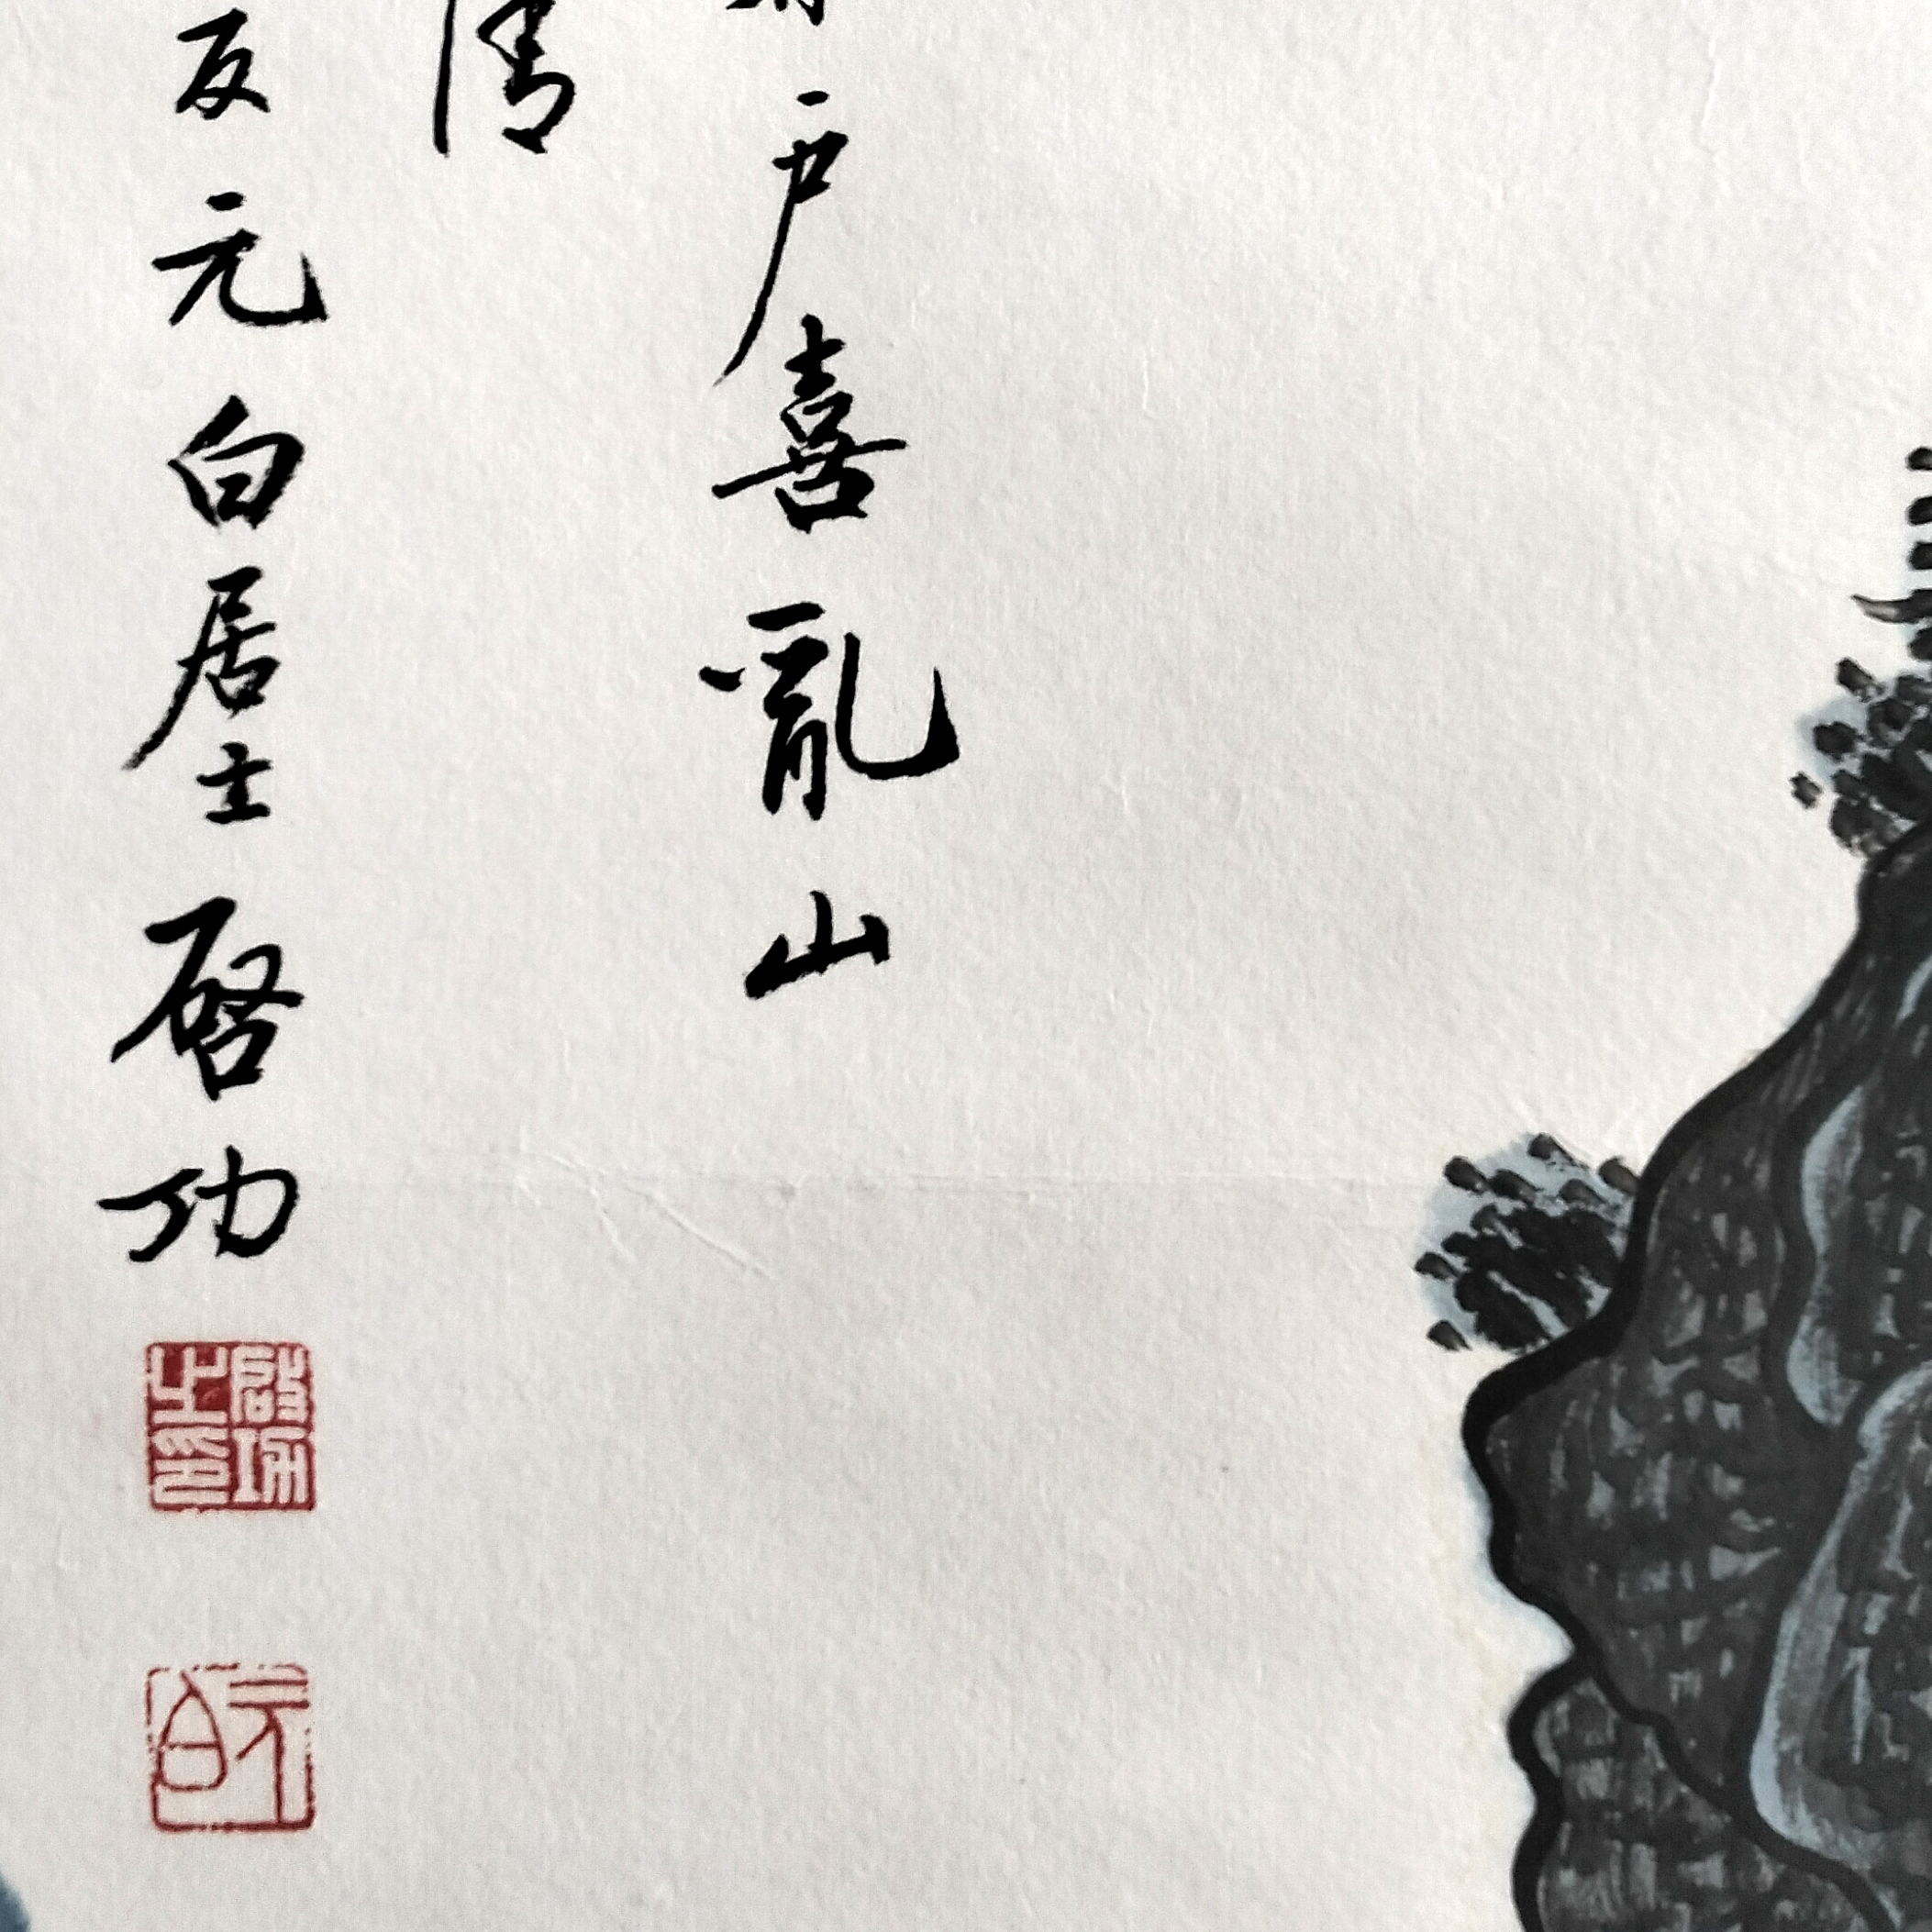 户喜亂山
清
友元白居士启功
啟功之印
元白